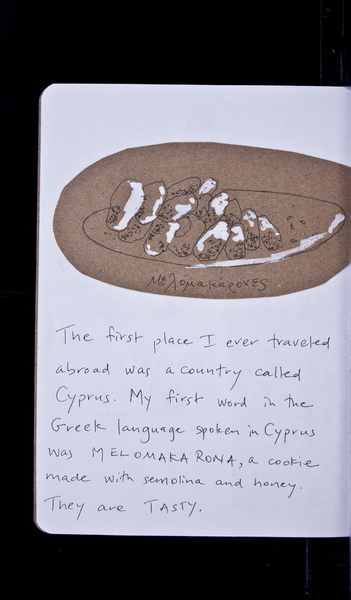 μελομακάρονες
The first place I ever traveled
abroad was a country called
Cyprus. My first word in the
Greek language spoken in Cyprus
was MELOMAKARONA, a cookie
made with semolina and honey.
They are TASTY.